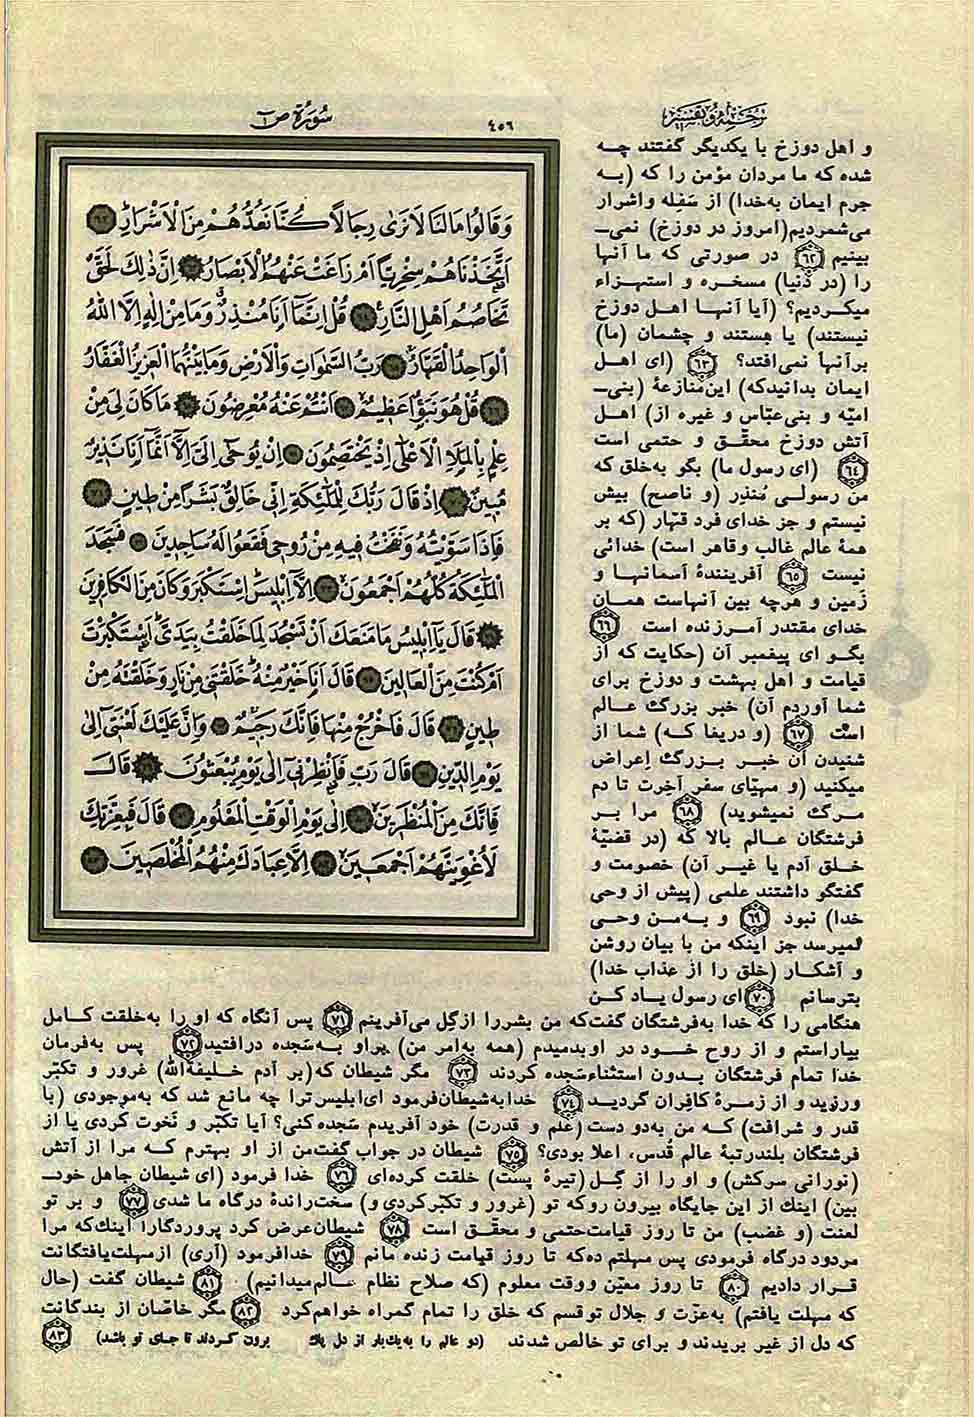 ترجمه و تفسیر
٤٥٦
سورة ص
و اهل دوزخ با یکدیگر گفتند چه
شده که ما مردان مؤمن را که (به
جرم ایمان به‌خدا) از سفله و اشرار
می‌شمردیم (امروز در دوزخ) نمی‌ـ
بینیم ۶۲ در صورتی که ما آنها
را (در دنیا) مسخره و استهزاء
میکردیم؟ (آیا آنها اهل دوزخ
نیستند) یا هستند و چشمان (ما)
برآنها نمی‌افتد؟ ۶۳ (ای اهل
ایمان بدانیدکه) این‌منازعهٔ (بنی‌ـ
امیّه و بنی‌عبّاس و غیره از) اهل
آتش دوزخ محقّق و حتمی است
۶۴ (ای رسول ما) بگو به‌خلق که
من رسولی مُنذِر (و ناصح) بیش
نیستم و جز خدای فرد قهّار (که بر
همهٔ عالم غالب و قاهر است) خدائی
نیست ۶۵ آفرینندهٔ آسمانها و
زَمین و هرچه بین آنهاست همان
خدای مقتدر آمرزنده است ۶۶
بگو ای پیغمبر آن (حکایت که از
قیامت و اهل بهشت و دوزخ برای
شما آوردم آن) خبر بزرگ عالم
است ۶۷ (و دریغا که) شما از
شنیدن آن خبر بزرگ اِعراض
میکنید (و مهیّای سفر آخرت تا دم
مرگ نمیشوید) ۶۸ مرا بر
فرشتگان عالم بالا که (در قضیّهٔ
خلق آدم یا غیر آن) خصومت و
گفتگو داشتند علمی (پیش از وحی
خدا) نبود ۶۹ و به‌من وحی
نمیرسد جز اینکه من با بیان روشن
و آشکار (خلق را از عذاب خدا)
بترسانم ۷۰ ای رسول یاد کن
وَقَالُوا مَالَنَا لَا نَرٰی رِجَالًا كُنَّا نَعُدُّهُمْ مِنَ الْاَشْرَارِ ۶۲
اَتَّخَذْنَاهُمْ سِخْرِیًّا اَمْ زَاغَتْ عَنْهُمُ الْاَبْصَارُ ۶۳ اِنَّ ذٰلِكَ لَحَقٌّ
تَخَاصُمُ اَهْلِ النَّارِ ۶۴ قُلْ اِنَّمَا اَنَا مُنْذِرٌ وَمَا مِنْ اِلٰهٍ اِلَّا اللّٰهُ
الْوَاحِدُ الْقَهَّارُ ۶۵ رَبُّ السَّمٰوَاتِ وَالْاَرْضِ وَمَا بَیْنَهُمَا الْعَزِیزُ الْغَفَّارُ
۶۶ قُلْ هُوَ نَبَؤٌا عَظِیمٌ ۶۷ اَنْتُمْ عَنْهُ مُعْرِضُونَ ۶۸ مَا كَانَ لِیَ مِنْ
عِلْمٍ بِالْمَلَاِ الْاَعْلٰی اِذْ یَخْتَصِمُونَ ۶۹ اِنْ یُوحٰی اِلَیَّ اِلَّا اَنَّمَا اَنَا نَذِیرٌ
مُبِینٌ ۷۰ اِذْ قَالَ رَبُّكَ لِلْمَلٰئِكَةِ اِنِّی خَالِقٌ بَشَرًا مِنْ طِینٍ ۷۱
فَاِذَا سَوَّیْتُهُ وَنَفَخْتُ فِیهِ مِنْ رُوحِی فَقَعُوا لَهُ سَاجِدِینَ ۷۲ فَسَجَدَ
الْمَلٰئِكَةُ كُلُّهُمْ اَجْمَعُونَ ۷۳ اِلَّا اِبْلِیسَ اِسْتَكْبَرَ وَكَانَ مِنَ الْكَافِرِینَ
۷۴ قَالَ یَا اِبْلِیسُ مَا مَنَعَكَ اَنْ تَسْجُدَ لِمَا خَلَقْتُ بِیَدَیَّ اَسْتَكْبَرْتَ
اَمْ كُنْتَ مِنَ الْعَالِینَ ۷۵ قَالَ اَنَا خَیْرٌ مِنْهُ خَلَقْتَنِی مِنْ نَارٍ وَخَلَقْتَهُ مِنْ
طِینٍ ۷۶ قَالَ فَاخْرُجْ مِنْهَا فَاِنَّكَ رَجِیمٌ ۷۷ وَاِنَّ عَلَیْكَ لَعْنَتِی اِلٰی
یَوْمِ الدِّینِ ۷۸ قَالَ رَبِّ فَاَنْظِرْنِی اِلٰی یَوْمِ یُبْعَثُونَ ۷۹ قَالَ
فَاِنَّكَ مِنَ الْمُنْظَرِینَ ۸۰ اِلٰی یَوْمِ الْوَقْتِ الْمَعْلُومِ ۸۱ قَالَ فَبِعِزَّتِكَ
لَاُغْوِیَنَّهُمْ اَجْمَعِینَ ۸۲ اِلَّا عِبَادَكَ مِنْهُمُ الْمُخْلَصِینَ ۸۳
هنگامی را که خدا به‌فرشتگان گفت‌که من بشررا ازگِل می‌آفرینم ۷۱ پس آنگاه که او را به‌خلقت کامل
بیاراستم و از روح خود در اوبدمیدم (همه به‌امر من) براو به‌سَجده درافتید ۷۲ پس به‌فرمان
خدا تمام فرشتگان بدون استثناء سَجده کردند ۷۳ مگر شیطان که(بر آدم خلیفةالله) غرور و تکبّر
ورزید و از زمرهٔ کافران گردید ۷۴ خدابه‌شیطان‌فرمود ای‌ابلیس‌ترا چه مانع شد که به‌موجودی (با
قدر و شرافت) که من به‌دو دست (علم و قدرت) خود آفریدم سَجده کنی؟ آیا تکبّر و نَخوت کردی یا از
فرشتگان بلندرتبهٔ عالم قُدس، اعلا بودی؟ ۷۵ شیطان در جواب گفت‌من از او بهترم که مرا از آتش
(نورانی سرکش) و او را از گِل (تیرهٔ پَست) خلقت کرده‌ای ۷۶ خدا فرمود (ای شیطان جاهل خودـ
بین) اینك از این جایگاه بیرون روکه تو (غرور و تکبّرکردی و) سخت‌راندهٔ درگاه ما شدی ۷۷ و بر تو
لعنت (و غضب) من تا روز قیامت‌حتمی و محقّق است ۷۸ شیطان‌عرض کرد پروردگارا اینك‌که مرا
مردود درگاه فرمودی پس مهلتم ده‌که تا روز قیامت زنده مانم ۷۹ خدافرمود (آری) ازمهلت‌یافتگانت
قرار دادیم ۸۰ تا روز معیّن ووقت معلوم (که صلاح نظام عالم‌میدانیم) ۸۱ شیطان گفت (حال
که مهلت یافتم) به‌عزّت و جلال توقسم که خلق را تمام گمراه خواهم‌کرد ۸۲ مگر خاصّان از بندگانت
که دل از غیر بریدند و برای تو خالص شدند (دو عالم را به‌یك‌بار از دل پاك برون کردند تا جای تو باشد) ۸۳